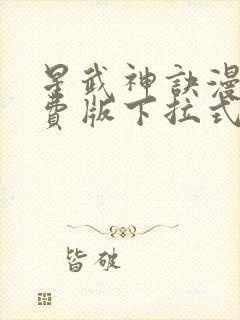 星武神訣漫
費版下拉式
皆破